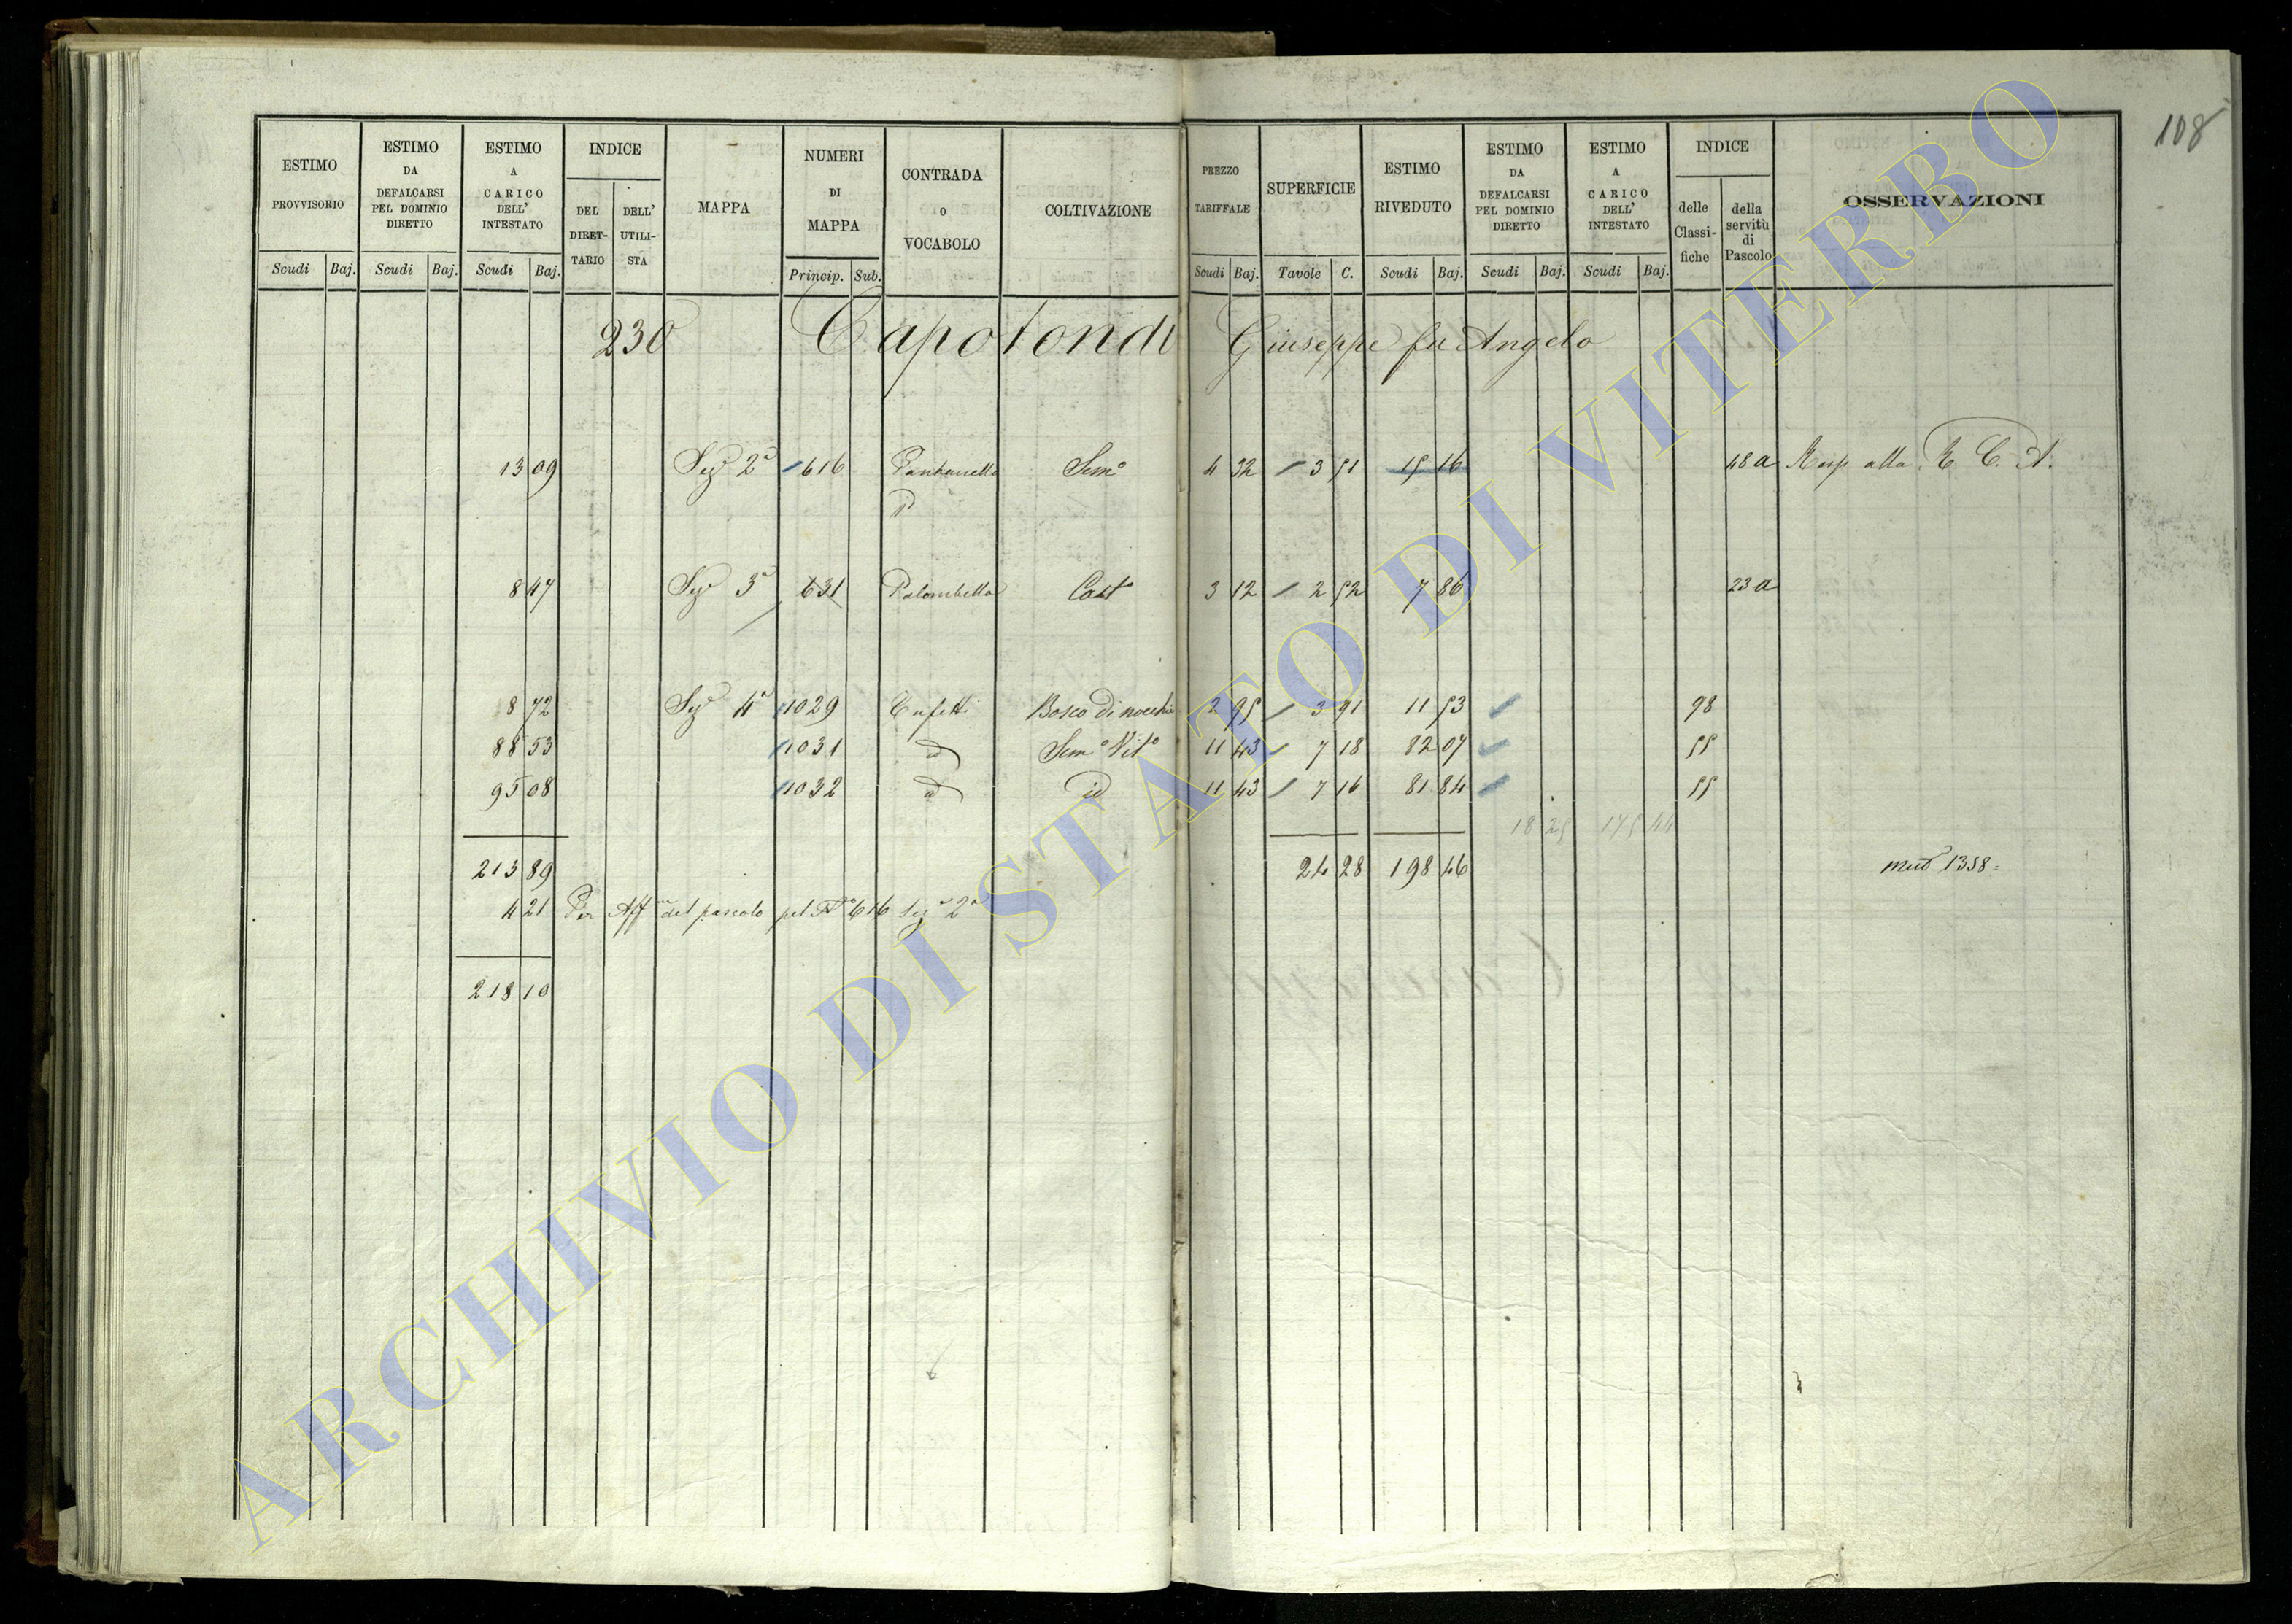 108
ESTIMO PROVVISORIO
ESTIMO DA DEFALCARSI PEL DOMINIO DIRETTO
ESTIMO A CARICO DELL' INTESTATO
INDICE
DEL DIRET-TARIO
DELL' UTILI-STA
MAPPA
NUMERI DI MAPPA
CONTRADA O VOCABOLO
COLTIVAZIONE
PREZZO TARIFFALE
SUPERFICIE
ESTIMO RIVEDUTO
ESTIMO DA DEFALCARSI PEL DOMINIO DIRETTO
ESTIMO A CARICO DELL' INTESTATO
INDICE
delle Classi-fiche
della servitù di Pascolo
OSSERVAZIONI
Scudi Baj. Scudi Baj. Scudi Baj. Princip. Sub. Scudi Baj. Tavole C. Scudi Baj. Scudi Baj. Scudi Baj.
230 Capotondi Giuseppe fu Angelo
13 09 Sez 2a 616 Semo 4 32 3 51 15 16 48a Risp alla R. C. A.
8 47 Sez 3a 631 Palombella Casto 3 12 2 52 7 86 23a
8 72 Sez 4a 1029 Tufetti Bosco di nocchie 2 95 3 91 11 53 98
88 53 1031 d Semo Vito 11 43 7 18 82 07 55
95 08 1032 d id 11 43 7 16 81 84 55
18 25 175 44
213 89 24 28 198 46 mut 1358=
4 21 Per Aff ne del pascolo pel No 616 Sez a 2a
218 10
ARCHIVIO DI STATO DI VITERBO